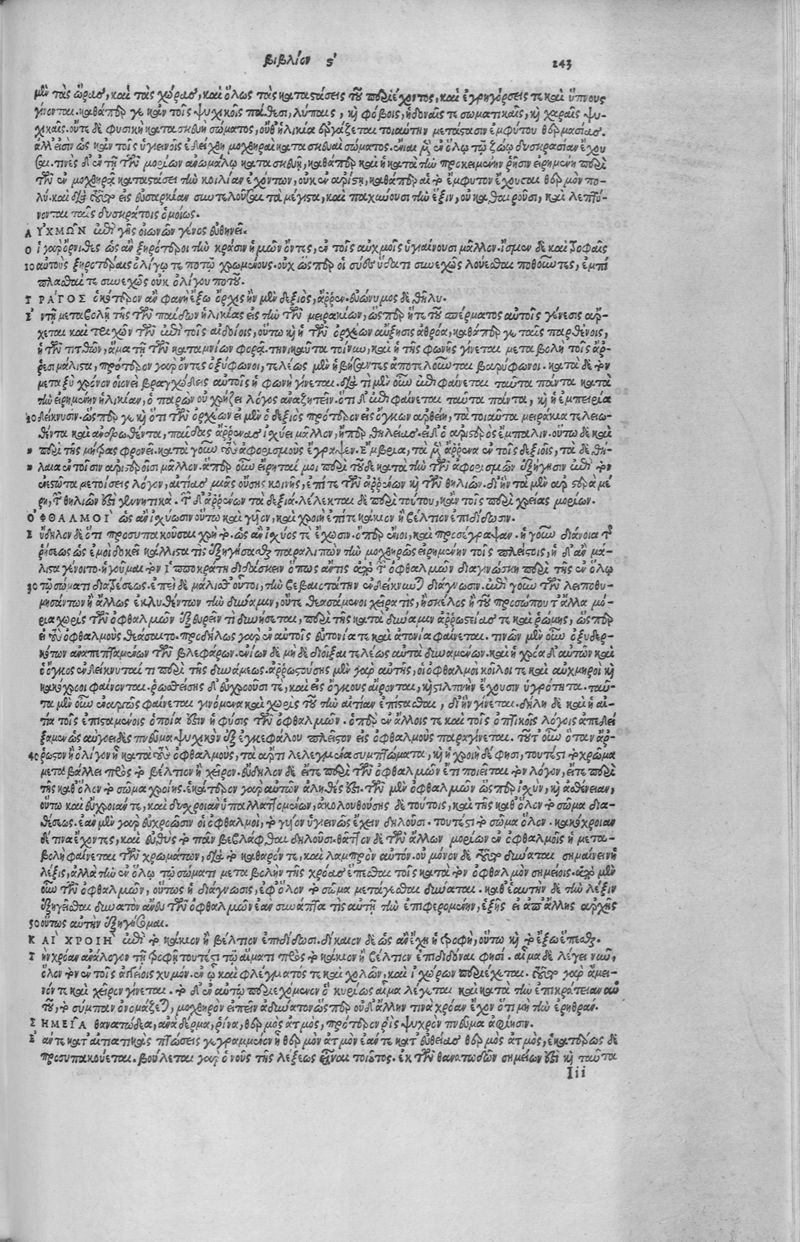 βιβλίον ς′ 243
μὲν τὰς ὥρας, καὶ τὰς χώρας, καὶ ὅλως τὰς καταστάσεις τοῦ περιέχοντος, καὶ ἐγρηγόρσεις τε καὶ ὕπνους
γίνονται. καθάπερ γε κἀν τοῖς ψυχικοῖς πάθεσι, λύπαις, καὶ φόβοις, ἡδοναῖς τε σωματικαῖς, καὶ χαραῖς ψυ-
χικαῖς. οὔτε δὲ φυσικὴ κατασκευὴ σώματος, οὔθ' ἡλικία ἐργάζεται τοιαύτην μετάστασιν ἐμφύτου θερμασίας.
ἀλλ' εἰσὶν ὡς κἀν τοῖς ὑγιεινοῖς ἐδείχθη μοχθηραὶ κατασκευαὶ σώματος. ἔνιαι μὲν ἐν ὅλῳ τῷ ζώῳ δυσκρασίαν ἔχου
σαι. τινὲς δ' ἐν τῇ τῶν μορίων ἀνωμάλῳ κατασκευῇ, καθάπερ καὶ ἡ κατὰ τὴν προκειμένην ῥῆσιν εἰρημένη περὶ
τῶν ἐν μοχθηρᾷ καταστάσει τὴν κοιλίαν ἐχόντων, οὐκ ἐν ἀρίστῃ, καθάπερ αἱ τὸ ἔμφυτον ἔχουσαι θερμὸν πο-
λύ. καὶ διὰ τοῦτο εἰς εὐσαρκίαν συντελοῦσαι τὰ μέγιστα, καὶ παχύνουσι τὴν ἕξιν, οὐ καθαιροῦσι, καὶ λεπτύ-
νονται ταῖς δυσκράτοις ὁμοίως.
ΑΥΧΜΩΝ ἐπὶ γῆς οἰωνῶν γένος εὐθηνεῖ.
Οἱ γὰρ ὄρνιθες ὡς ἂν ξηρότεροι τὴν κρᾶσιν ἡμῶν ὄντες, ἐν τοῖς αὐχμοῖς ὑγιαίνουσι μᾶλλον. ἴσμεν δὲ καὶ τροφαῖς
10 αὐτοὺς ξηροτέραις ὀλίγῳ τε ποτῷ χρωμένους. οὐχ ὥσπερ οἱ σύες ὕδατι συνεχῶς λούεσθαι ποθοῦντες, ἐμπί
πλασθαί τε συνεχῶς οὐκ ὀλίγου ποτοῦ.
ΤΡΑΓΟΣ ὁκότερον ἂν φανῇ ἔξω ὄρχις ἢν μὲν δεξιὸς, ἄρρεν. εὐώνυμος δὲ θῆλυ.
Ἐν τῇ μεταβολῇ τῆς τῶν παίδων ἡλικίας εἰς τὴν τῶν μειρακίων, ὥσπερ ἥ τε τοῦ σπέρματος αὐτοῖς γένεσις ἄρ-
χεται καὶ τριχῶν τῶν ἐπὶ τοῖς αἰδοίοις, οὕτω καὶ ἡ τῶν ὄρχεων αὔξησις ἀθρόα, καθάπερ γε ταῖς παρθένοις,
ἡ τῶν τιτθῶν, ἅμα τῇ τῶν καταμηνίων φορᾷ. τηνικαῦτα τοίνυν, καὶ ἡ τῆς φωνῆς γίνεται μεταβολὴ τοῖς ἄρ-
ρεσι μάλιστα, πρότερον γὰρ ὄντες ὀξύφωνοι, τελέως μὲν ἡβήσαντες ἀποτελοῦνται βαρύφωνοι. κατὰ δὲ τὸν
μεταξὺ χρόνον οἱονεὶ βραγχώδεις αὐτοῖς ἡ φωνὴ γίνεται. διὰ τί μὲν οὖν ἐπιφαίνεται ταῦτα πάντα κατὰ
τὴν εἰρημένην ἡλικίαν, ὁ παρὼν οὐ χρῄζει λόγος ἀναζητεῖν. ὅτι δ' ἐπιφαίνεται ταῦτα πάντα, καὶ ἡ ἐμπειρία
20 δείκνυσιν. ὥσπερ γε καὶ ὅτι τῶν ὄρχεων εἰ μὲν ὁ δεξιὸς πρότερος εἰς ὄγκον αὐξηθείη, τὰ τοιαῦτα μειράκια τελειω-
θέντα καὶ ἀνδρωθέντα, παῖδας ἄρρενας ἰσχύει μᾶλλον, ἤπερ θηλείας. εἰ δ' ὁ ἀριστερὸς ἔμπαλιν. οὕτω δὲ καὶ
περὶ τῆς μήτρας φρονεῖ. κατὰ γοῦν τοὺς ἀφορισμοὺς ἔγραψεν. Ἔμβρυα, τὰ μὲν ἄρρενα ἐν τοῖς δεξιοῖς, τὰ δὲ θή-
λεα ἐν τοῖσιν ἀριστεροῖσι μᾶλλον. ἅπερ οὖν εἴρηταί μοι περὶ τοῦδε κατὰ τὴν τῶν ἀφορισμῶν ἐξήγησιν ἐπὶ τὸν
ἐνεστῶτα μετοίσεις λόγον, αἰτίας μιᾶς οὔσης κοινῆς, ἐπί τε τῶν ἀρρένων καὶ τῶν θηλειῶν. δι' ἣν τὰ μὲν ἀριστερὰ μέ
ρη, τῶν θηλειῶν ἐστι γεννητικὰ. τῶν δ' ἀρρένων τὰ δεξιά. λέλεκται δὲ περὶ τούτου, κἀν τοῖς περὶ χρείας μορίων.
ΟΦΘΑΛΜΟΙ ὡς ἂν ἰσχύωσιν οὕτω καὶ γυῖον, καὶ χροιὴ ἐπί τε κάκιον ἢ βέλτιον ἐπιδίδωσιν.
Εὔδηλον δὲ ὅτι προσυπακοῦσαι χρὴ τὸ. ὡς ἂν ἰσχύος τε ἔχωσιν. ὅπερ ἔνιοι, καὶ προσέγραψαν. ἡ γοῦν διάνοια τῆς
ῥήσεως ὡς ἐμοὶ δοκεῖ κάλλιστα τῆς ἐξηγήσεως παραλιπὼν τὴν μοχθηρῶς εἰρημένην τοῖς πλείστοις, ἡ δ' ἂν μά-
λιστα γένοιτο. ἡγοῦμαι τὸν Ἱπποκράτη διδάσκειν ὅπως ἄν τις ἀπὸ τῶν ὀφθαλμῶν διαγνώσῃ περὶ τῆς ἐν ὅλῳ
30 τῷ σώματι διαθέσεως. ἐπεὶ δὲ μάλισθ' οὗτοι, τὴν βεβαιοτάτην ἐνδείκνυνται διάγνωσιν. ἐπὶ γοῦν τῶν λειποθυ-
μησάντων ἢ ἄλλως ἐκλυθέντων τὴν δύναμιν, οὔτε θεασάμενοι χεῖρά τις, ἢ σκέλος ἢ τοῦ προσώπου τἄλλα μό-
ρια χωρὶς τῶν ὀφθαλμῶν ἐξευρεῖν τι δυνήσεται, περὶ τῆς κατὰ δύναμιν ἀρρωστίας τε καὶ ῥώμης, ὥσπερ
εἰ τοὺς ὀφθαλμοὺς θεάσαιτο. προδήλως γὰρ ἐν αὐτοῖς εὐτονία τε καὶ ἀτονία φαίνεται. τινῶν μὲν οὖν ἐξυδερ-
κότων ἀναπεπταμένων τῶν βλεφάρων. ἐνίων δὲ μὴ δὲ διοῖξαι τελέως αὐτὰ δυναμένων. καὶ ἡ χρόα δ' αὐτῶν καὶ
ὁ ὄγκος ἐνδείκνυταί τι περὶ τῆς δυνάμεως. ἀρρωστούσης μὲν γὰρ αὐτῆς, οἱ ὀφθαλμοὶ κοῖλοί τε καὶ αὐχμηροὶ καὶ
κακόχροοι φαίνονται. ῥωσθείσης δ' εὐχροοῦσί τε, καὶ εἰς ὄγκους αἴρονται, καὶ στιλπνὴν ἔχουσιν ὑγρότητα. ταῦ-
τα μὲν οὖν ἐναργῶς φαίνεται γινόμενα καὶ χωρὶς τοῦ τὴν αἰτίαν ἐπίστασθαι, δι' ἣν γίνεται. δήλη δὲ καὶ ἡ αἰ-
τία τοῖς ἐπισταμένοις ὁποία ἐστὶν ἡ φύσις τῶν ὀφθαλμῶν. ὅπερ ἐν ἄλλοις τε καὶ τοῖς ὀπτικοῖς λόγοις ἀπεδεί
ξαμεν ὡς αὐγοειδὲς πνεῦμα ψυχικὸν ἐξ ἐγκεφάλου πλεῖστον εἰς ὀφθαλμοὺς παραγίνεται. τοῦτ' οὖν ὅταν ἄρ-
40 ρωστον ἢ ὀλίγον ἢ κατὰ τοὺς ὀφθαλμοὺς, τὰ ἄρτι λελεγμένα συμπτώματα, καὶ ἡ χροιὴ δέ φησι, τουτέστι τὸ χρῶμα
μεταβάλλει πρὸς τὸ βέλτιον ἢ χεῖρον. εὔδηλον δὲ εἴτε περὶ τῶν ὀφθαλμῶν ἔτι ποιεῖται τὸν λόγον, εἴτε περὶ
τῆς καθ' ὅλον τὸ σῶμα χροιῆς. ἑκάτερον γὰρ αὐτῶν ἀληθές ἐστι. τῶν μὲν ὀφθαλμῶν ὥσπερ ἰσχὺν, καὶ ἀσθένειαν,
οὕτω καὶ εὔχροιάν τε, καὶ δύσχροιαν ὑπαλλαττομένων, ἀκολουθούσης δὲ τούτοις, καὶ τῆς καθ' ὅλον τὸ σῶμα δια-
θέσεως. ἐὰν μὲν γὰρ εὐχρόωσιν οἱ ὀφθαλμοὶ, τὸ γυῖον ὑγιεινῶς ἔχειν δηλοῦσι. τουτέστι τὸ σῶμα ὅλον. κακόχροιαν
δέ τινα ἔχοντες, καὶ εὐθὺς τὸ πᾶν βεβλάφθαι δηλοῦσι. θᾶττον δὲ τῶν ἄλλων μορίων ἐν ὀφθαλμοῖς ἡ μετα-
βολὴ φαίνεται τῶν χρωμάτων, διὰ τὸ καθαρόν τε, καὶ λαμπρὸν αὐτόν. οὐ μόνον δὲ τοῦτο δύναται σημαίνειν ἡ
λέξις, ἀλλὰ τὴν ἐν ὅλῳ τῷ σώματι μεταβολὴν τῆς χρόας ἕπεσθαι τοῖς κατὰ τὸν ὀφθαλμὸν σημείοις. ἀπὸ μὲν
οὖν τῶν ὀφθαλμῶν, οὕτως ἡ διάγνωσις, ἐφ' ὅλον τὸ σῶμα μετάγεσθαι δύναται. καθ' ἑαυτὴν δὲ τὴν λέξιν
ἐξηγεῖσθαι δυνατὸν ἄνευ τῶν ὀφθαλμῶν ἐὰν συνάπτῃ τις αὐτῇ τὴν ἐπιφερομένην, ἑξῆς εἰ ἀπ' ἄλλης ἀρχῆς
50 οὕτως αὐτὴν ἐξηγήσομαι.
ΚΑΙ ΧΡΟΙΗ ἐπὶ τὸ κάκιον ἢ βέλτιον ἐπιδίδωσι. δίκαιον δὲ ὡς ἂν ἔχῃ ἡ τροφὴ, οὕτω καὶ τὸ ἔξω ἕπεσθαι.
Τὴν χρόαν ἀνάλογον τῇ τροφῇ τουτέστι τῷ αἵματι πρὸς τὸ κάκιον ἢ βέλτιον ἐπιδιδόναι φησί. αἷμα δὲ λέγει νῦν,
ὅλον τὸν ἐν τοῖς ἀγγείοις χυμόν. ἐν ᾧ καὶ φλέγματός τε καὶ χολῶν, καὶ ἰχώρων περιέχεται. τοῦτο γὰρ ἄμει-
νόν τε καὶ χεῖρον γίνεται. τὸ δ' ἐν αὐτῷ περιεχόμενον ὃ κυρίως αἷμα λέγεται καὶ κατὰ τὴν ἐπικράτειαν αὐ
τοῦ, τὸ σύμπαν ὀνομάζεται, μοχθηρὸν εἰπεῖν ἀδύνατον ὥσπερ οὐδ' ἄλλην τινὰ χρόαν ἔχον ὅτι μὴ τὴν ἐρυθρὰν.
ΣΗΜΕΙΑ θανατώδεα, ἀνὰ δέρμα, ῥῖνα, θερμὸς ἀτμὸς, πρότερον ῥὶς ψυχρὸν πνεῦμα ἀφίησιν.
Ἐάν τε κατ' αἰτιατικὰς πτώσεις γεγραμμένον ᾖ θερμὸν ἀτμὸν ἐάν τε κατ' εὐθείας θερμὸς ἀτμὸς, ἑκατέρως δὲ
προσυπακούεται. βούλεται γὰρ ὁ νοῦς τῆς λέξεως εἶναι τοιοῦτος. ἐκ τῶν θανατωδῶν σημείων ἐστὶ καὶ ταῦτα
Iii